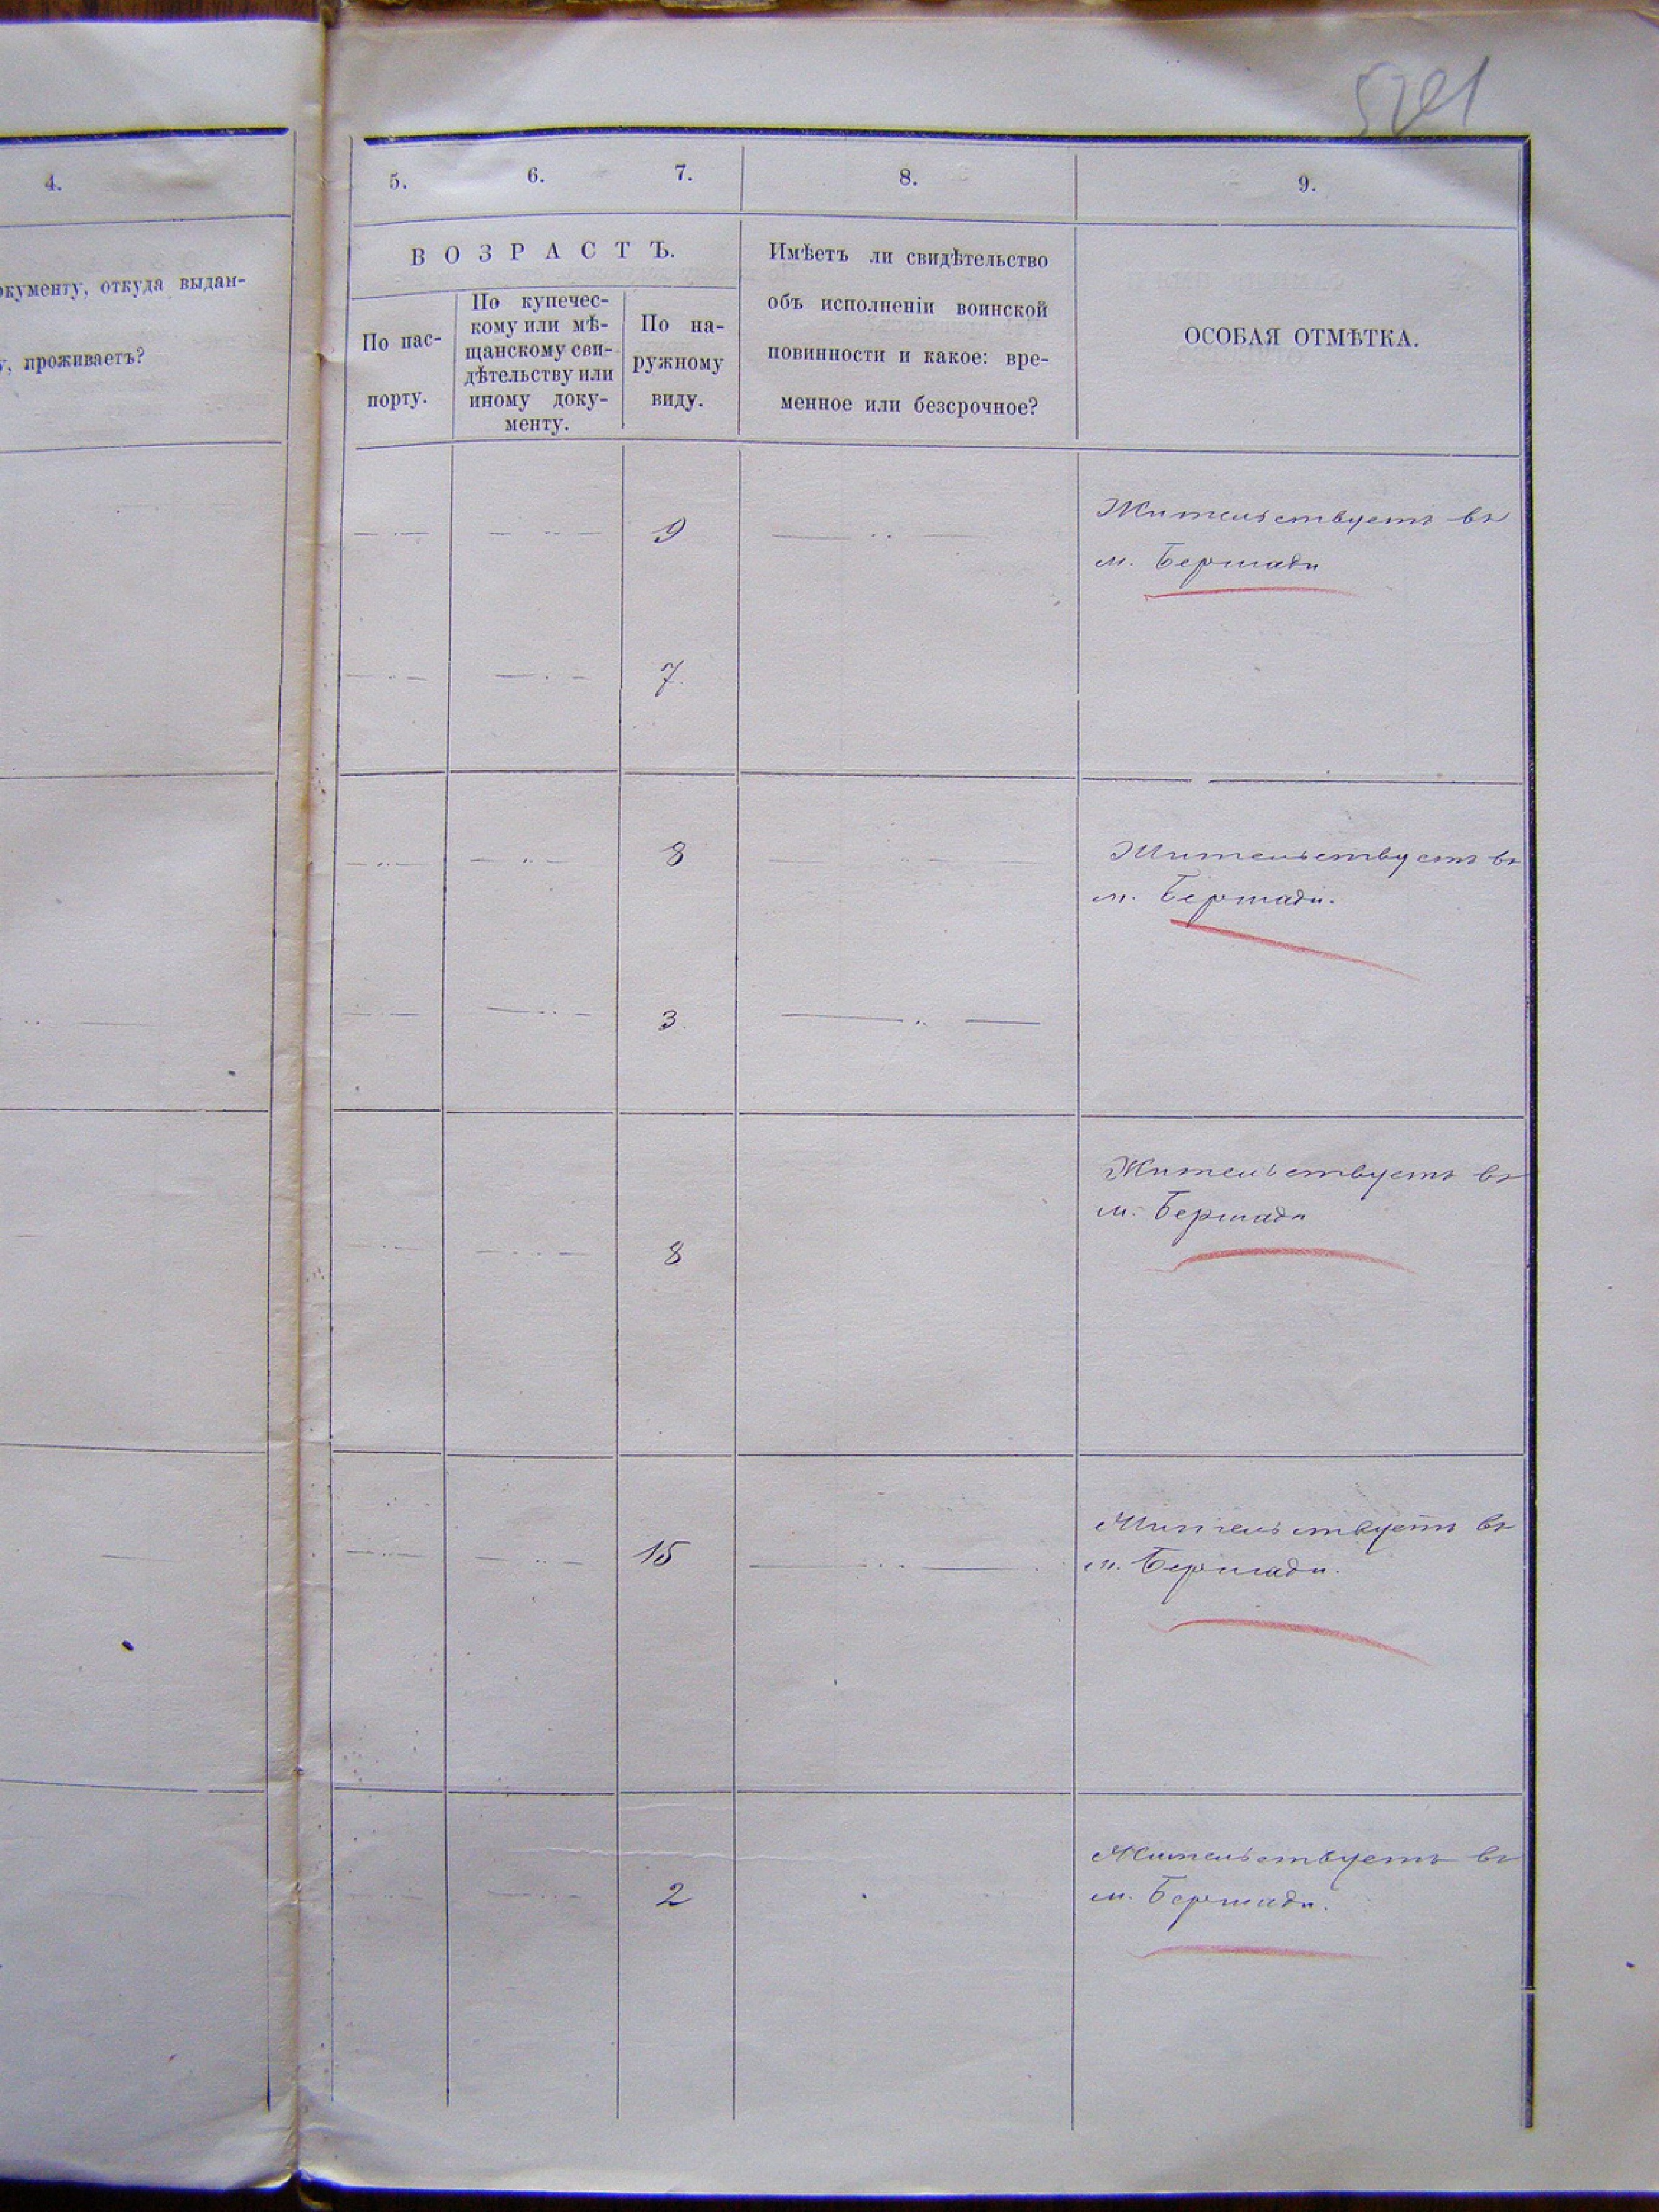 4.
окументу, откуда выдан-
у, проживаетъ?
5.
6.
7.
8.
9.
ВОЗРАСТЪ.
По пас-
порту.
По купечес-
кому или мѣ-
щанскому сви-
дѣтельству или
иному доку-
менту.
По на-
ружному
виду.
Имѣетъ ли свидѣтельство
объ исполненіи воинской
повинности и какое: вре-
менное или безсрочное?
ОСОБАЯ ОТМѢТКА.
9
Жительствуетъ въ
м. Бершади
7.
8
Жительствуетъ въ
м. Бершади.
3
Жительствуетъ въ
м. Бершади
8
15
Жительствуетъ въ
м. Бершади.
2
Жительствуетъ въ
м. Бершади.